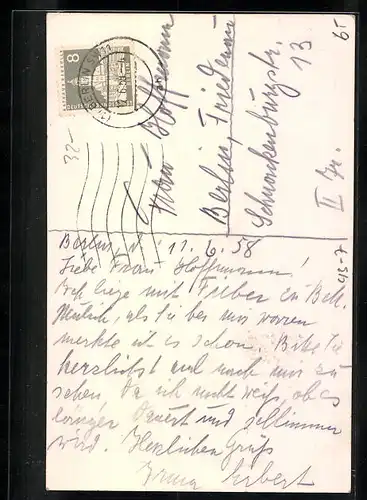 8
Frau Hoffmann
Berlin, Friedenau
Schmackenburgstr.
13
II Tr.
65
32-
Berlin, d. 11.6.58
Liebe Frau Hoffmann!
Ich liege mit Fieber zu Bett.
als Sie bei uns waren
merkte ich es schon. Bitte Sie
herzlichst mal nach mir zu
sehen. Da ich nicht weiß, ob es
länger dauert und schlimmer
wird. Herzlichen Gruß
Irma Erbert